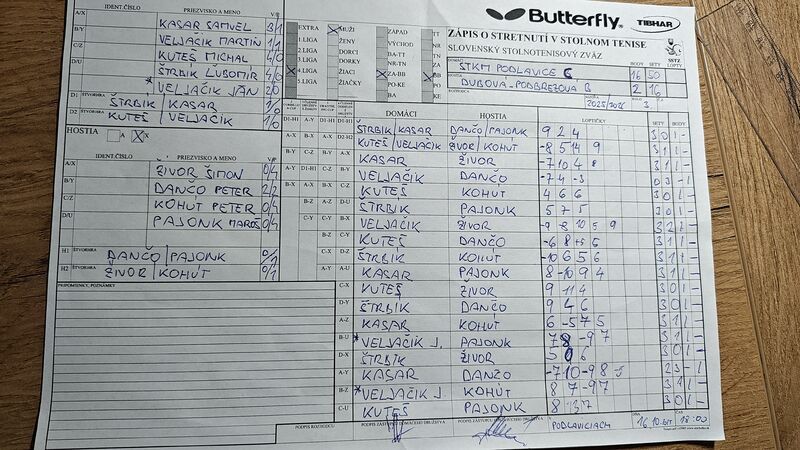 Butterfly
TIBHAR
ZÁPIS O STRETNUTÍ V STOLNOM TENISE
SLOVENSKÝ STOLNOTENISOVÝ ZVÄZ
SSTZ
IDENT.ČÍSLO PRIEZVISKO A MENO V/P
A/X KASAR SAMUEL 3/1
B/Y VELJAČIK MARTIN 1/1
C/Z KUTEŠ MICHAL 4/0
D/U ŠTRBIK ĽUBOMÍR 4/0
* VELJAČIK JÁN 2/0
D1 ŠTVORHRA ŠTRBIK KASAR 1/0
D2 KUTEŠ VELJAČIK 1/0
HOSTIA A X
IDENT.ČÍSLO PRIEZVISKO A MENO V/P
A/X ŽIVOR ŠIMON 0/4
B/Y DANČO PETER 2/2
C/Z KOHÚT PETER 0/4
D/U PAJONK MAROŠ 0/4
H1 ŠTVORHRA DANČO/PAJONK 0/1
H2 ŽIVOR/KOHÚT 0/1
PRIPOMIENKY, POZNÁMKY
EXTRA MUŽI ZÁPAD TT
1.LIGA ŽENY VÝCHOD
2.LIGA DORCI BA
3.LIGA DORKY NR-TN
4.LIGA ŽIACI ZA-BB
5.LIGA ŽIAČKY PO-KE
DOMÁCI STKM PODLAVICE C BODY 16 SETY 50
HOSTIA DUBOVÁ-PODBREZOVÁ B 2 16
2025/2026 KOLO 3.
DOMÁCI HOSTIA LOPTIČKY SETY
D1-H1 ŠTRBIK/KASAR DANČO/PAJONK 9 2 4 3 0 1 -
D2-H2 KUTEŠ/VELJAČIK ŽIVOR/KOHÚT -8 5 14 9 3 1 1 -
KASAR ŽIVOR -7 10 4 8 3 1 1 -
VELJAČIK DANČO -7 -4 -3 0 3 - 1
KUTEŠ KOHÚT 4 6 6 3 0 1 -
ŠTRBIK PAJONK 5 7 5 3 0 1 -
VELJAČIK ŽIVOR -9 -8 10 5 9 3 2 1 -
KUTEŠ DANČO 3 1 1 -
ŠTRBIK KOHÚT -10 6 5 6 3 1 1 -
KASAR PAJONK 8 -10 9 4 3 1 1 -
C-X KUTEŠ ŽIVOR 9 11 4 3 0 1 -
D-Y ŠTRBIK DANČO 9 4 6 3 0 1 -
A-Z KASAR KOHÚT 6 -5 7 5 3 1 1 -
B-U * VELJAČIK J. PAJONK 3 1 1 -
D-X ŠTRBIK ŽIVOR 3 0 1 -
A-Y KASAR DANČO -7 10 -9 8 -5 2 3 - 1
B-Z * VELJAČIK J KOHÚT 8 7 -9 7 3 1 1 -
C-U KUTEŠ PAJONK 3 0 1 -
PODPIS ROZHODCU PODPIS ZÁSTUPCU DOMÁCEHO DRUŽSTVA PODLAVICIACH DŇA ČAS 18:00